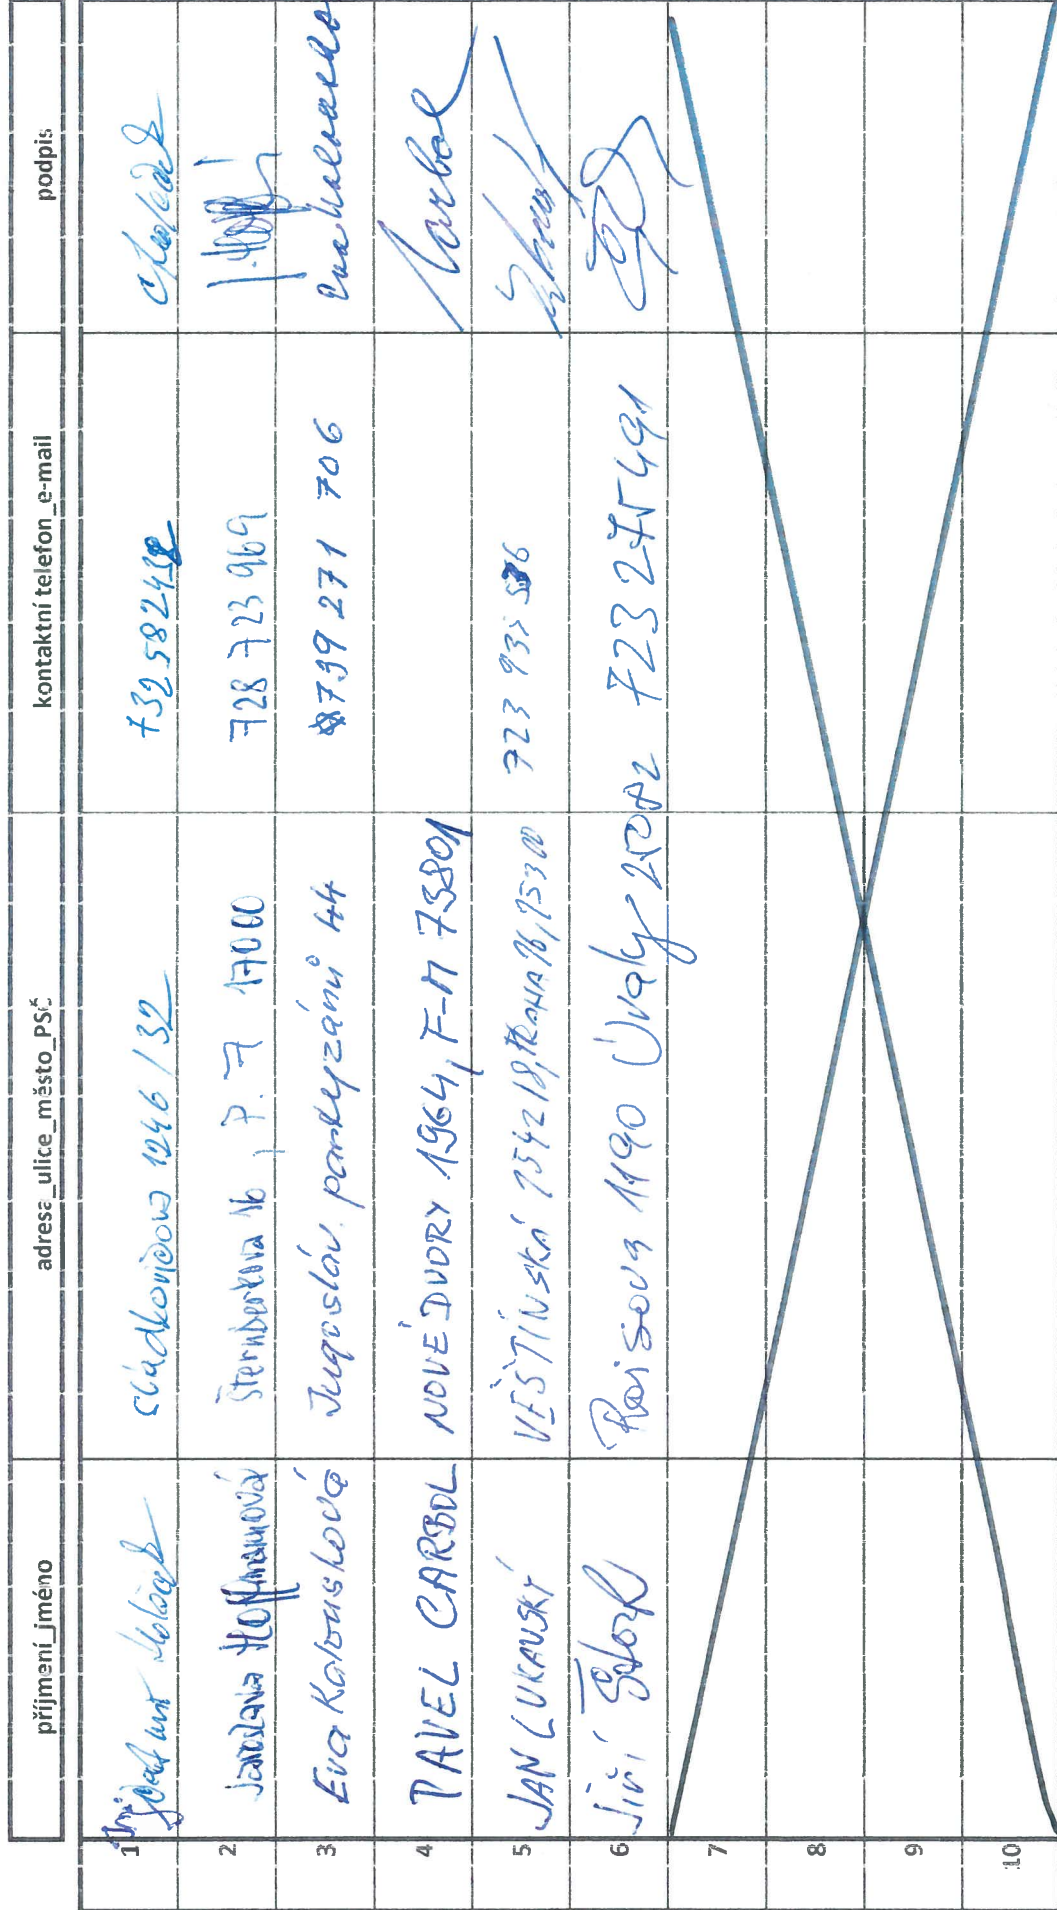 příjmení_jméno adresa_ulice_město_PSČ kontaktní telefon_e-mail podpis
1 Sládkovičova 1246/32 732582438
2 Jaroslava Hoffmanová Šternberkova 16, P. 7 17000 728 723 969
3 Eva Kalousková Jugosláv. partyzánů 44 739 271 706 Eva Kalousková
4 PAVEL CARBOL NOVÉ DVORY 1964, F-M 73801 Carbol
5 JAN LUKAVSKÝ VEŠTÍNSKÁ 723
6 Jiří Raisova 1190 Úvaly 25082 723 275491
7
8
9
10